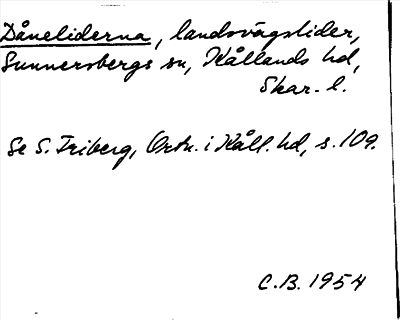 Dåneliderna, landsvägslider,
Sunnersbergs sn, Kållands hd,
Skar. l.
Se S. Friberg, Ortn. i Kåll. hd, s. 109.
C.B. 1954